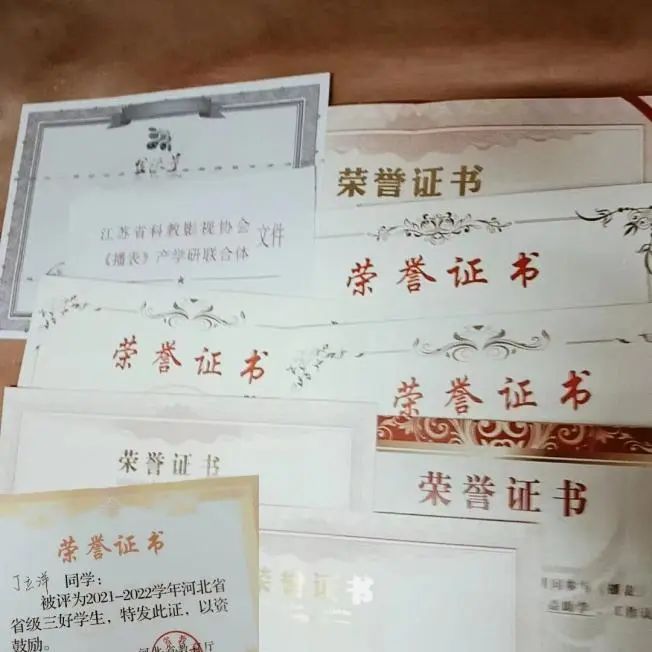 荣誉证书
江苏省科教影视协会
《播表》产学研联合体
文件
荣誉证书
荣誉证书
荣誉证书
荣誉证书
荣誉证书
荣誉证书
荣誉证书
丁立洋 同学：
被评为2021-2022学年河北省
省级三好学生，特发此证，以资
鼓励。